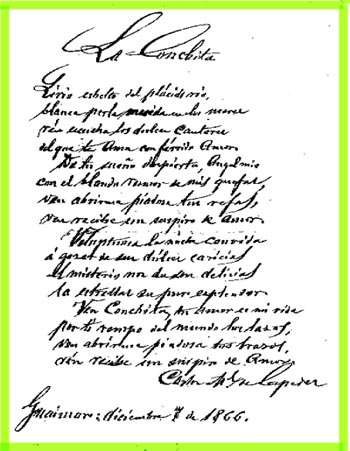 La Conchita
Lirio esbelto del plácido río,
blanca perla mecida en los
ven escucha los dulces cantares
del que te Ama con férvido Amor
De tu sueño despierta, Angel mio
con el blando rumor de mis quejas,
ven abrirme piadosa tus rejas,
ven recibe un suspiro de Amor.
Voluptuosa la noche convida
á gozar de sus dulces caricias
el misterio nos da sus delicias
la estrella su puro esplendor
Ven Conchita, tu amor es mi vida
por ti rompo del mundo los lazos,
ven abrirme piadosa tus brazos,
ven recibe un suspiro de Amor
Carlos M. de Cespedes
Guaimaro: diciembre 7 de 1866.